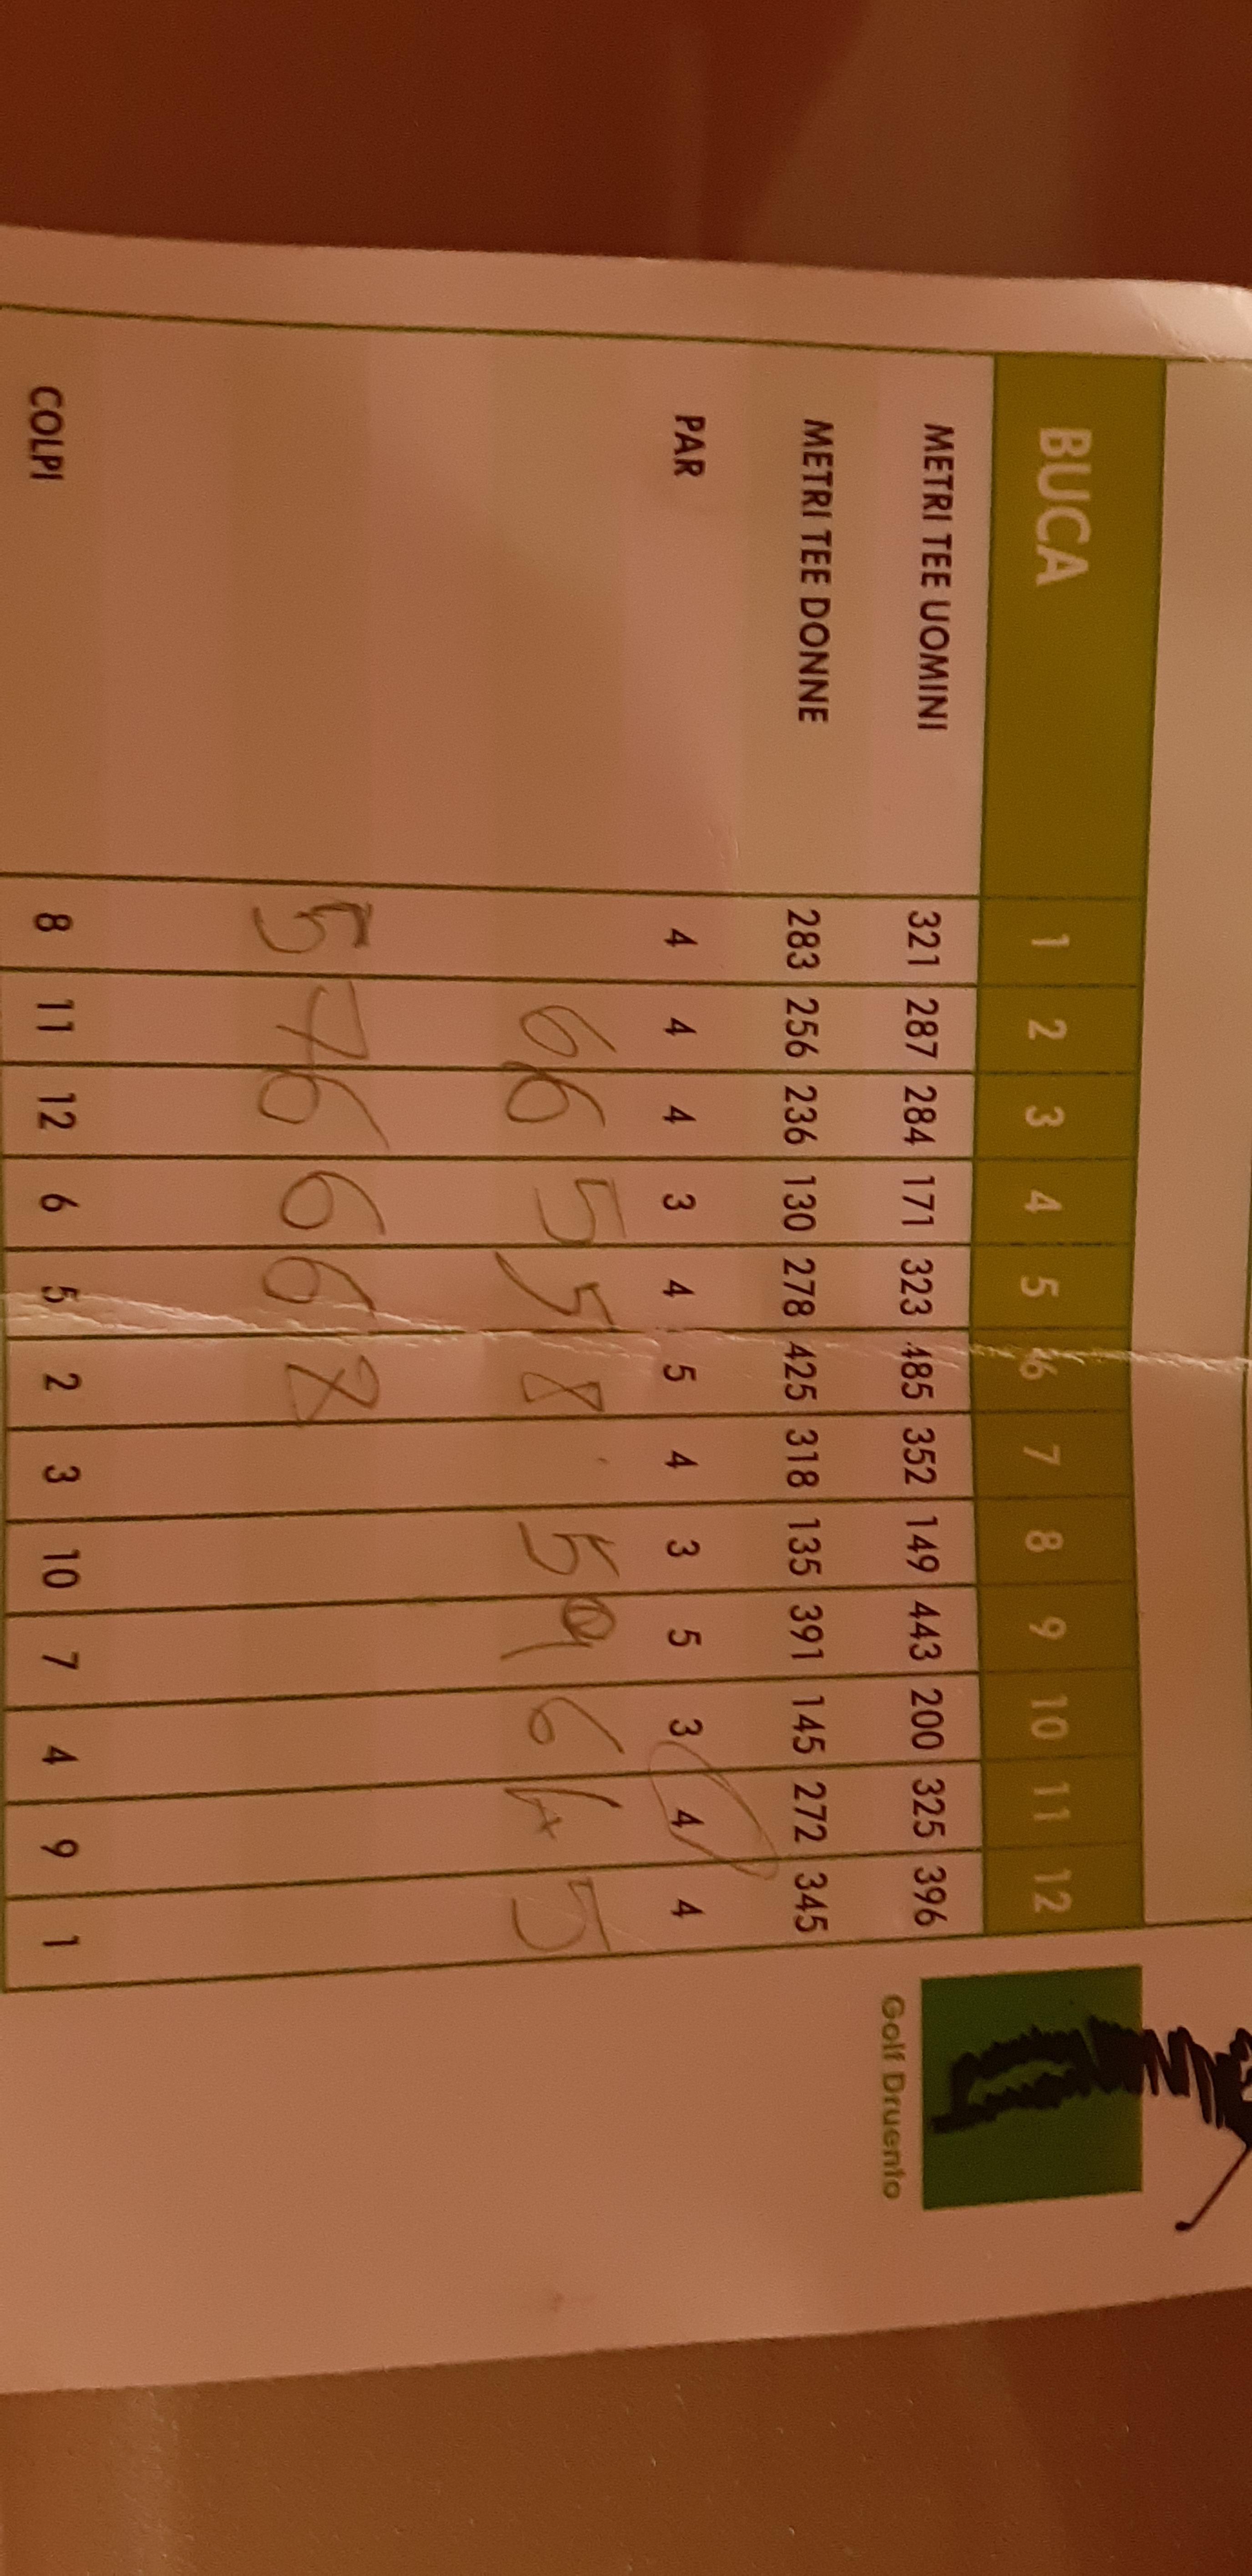 BUCA 1 2 3 4 5 6 7 8 9 10 11 12
METRI TEE UOMINI 321 287 284 171 323 485 352 149 443 200 325 396
METRI TEE DONNE 283 256 236 130 278 425 318 135 391 145 272 345
PAR 4 4 4 3 4 5 4 3 5 3 4 4
6 6 5 5 8 5 9 6 5
5 7 6 6 6 8
COLPI 8 11 12 6 5 2 3 10 7 4 9 1
Golf Druento